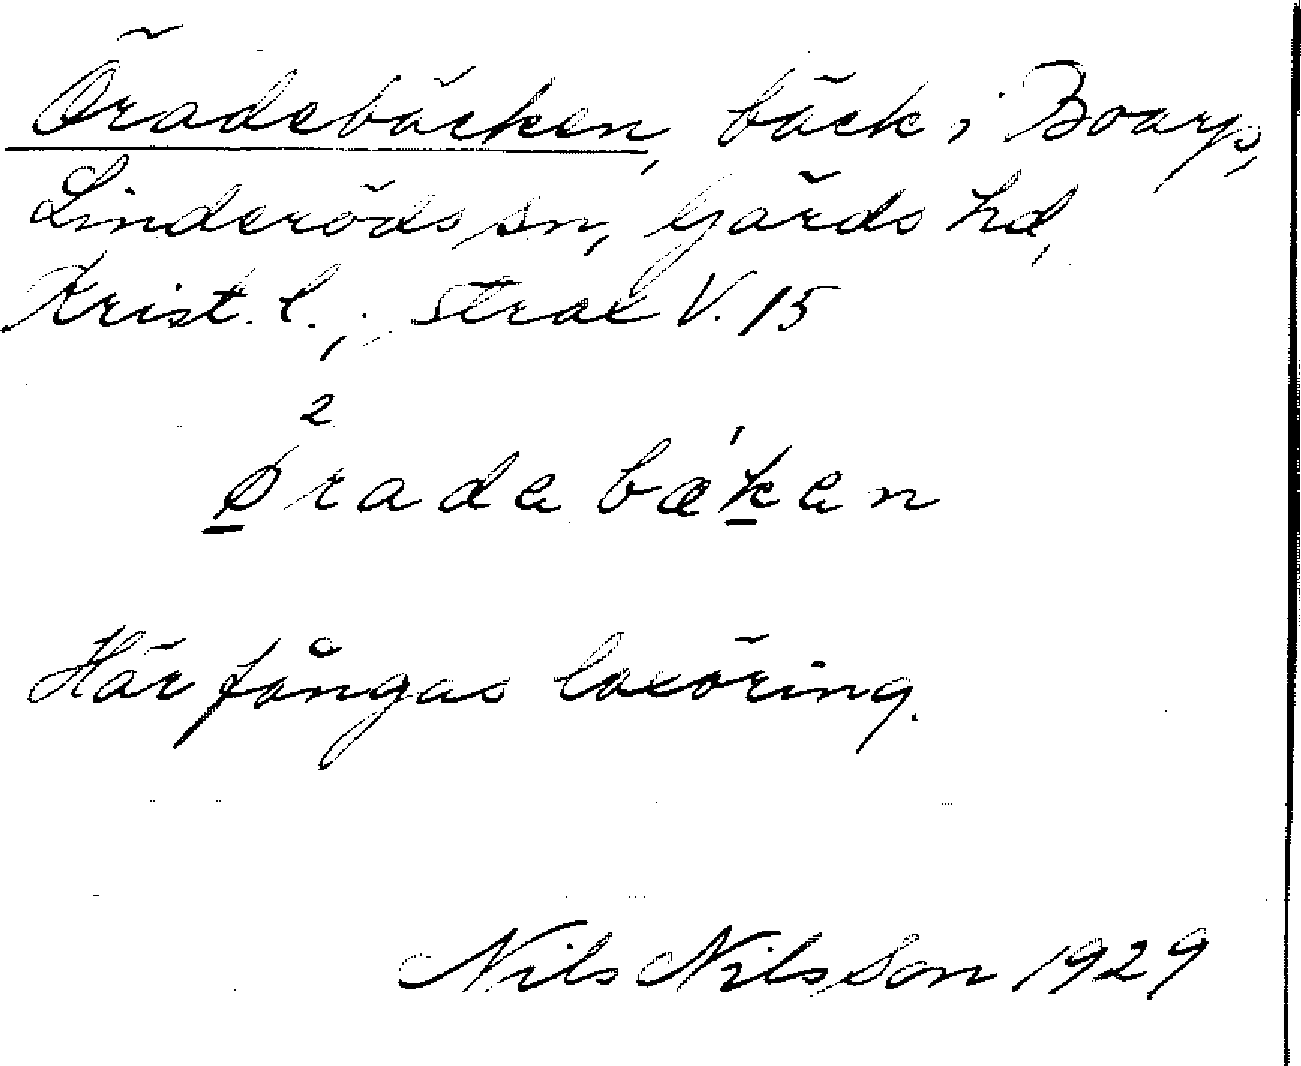 Öradebäcken, bäck i Boarp,
Linderöds sn, Gärds hd,
Krist. l.; Strax V. 15
2
øradebæken
Här fångas laxöring.
Nils Nilsson 1929